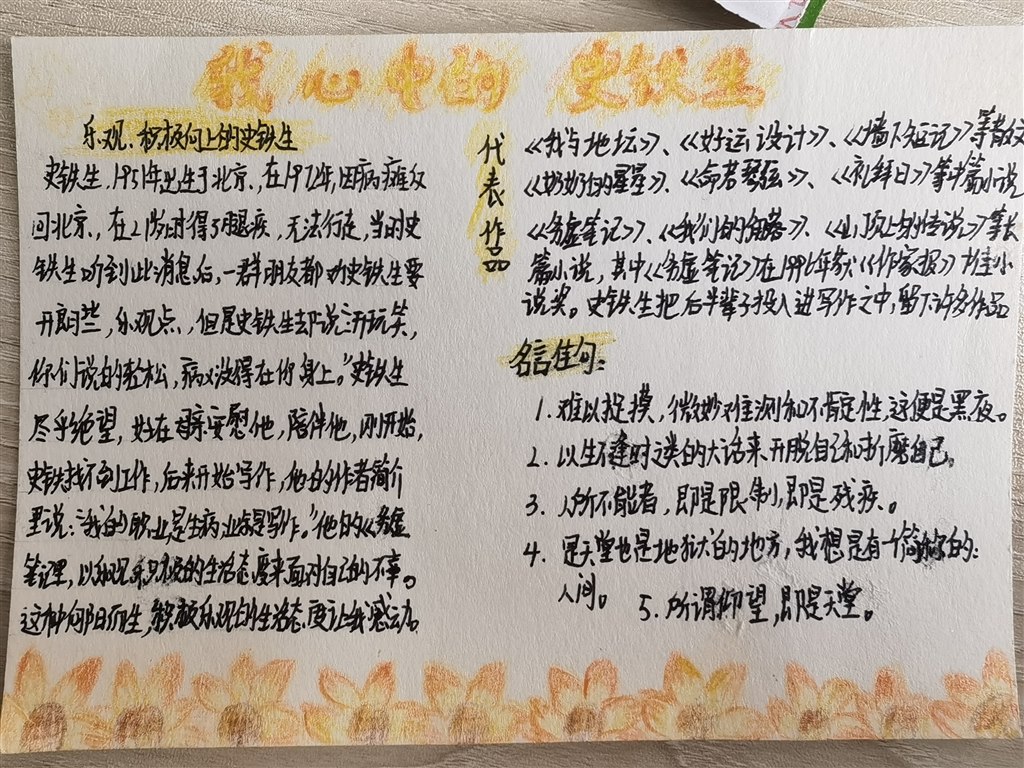 我心中的 史铁生
乐观、积极向上的史铁生
史铁生,1951年出生于北京、在1972年,因病瘫痪
回北京、在21岁时得了腿疾,无法行走,当时史
铁生听到此消息后,一群朋友都劝史铁生要
开朗些,乐观点、但是史铁生却说:"开玩笑,
你们说的轻松,病又没得在你身上。"史铁生
尽乎绝望,好在母亲安慰他,陪伴他,刚开始,
史铁找不到工作,后来开始写作,他的作者简介
里说:"我的职业是生病,业余是写作。"他的《务虚
笔记里,以乐观积极的生活态度来面对自己的不幸。
这种向阳而生,积极乐观的生活态度让我感动。
代表作品
《我与地坛》、《好运设计》、《墙下短记》等散文
《奶奶的星星》、《命若琴弦》、《礼拜日》等中篇小说
《务虚笔记》、《我们的角落》、《山顶上的传说》等长
篇小说,其中《务虚笔记》在1996年获《作家报》十佳小
说奖。史铁生把后半辈子投入进写作之中,留下许多作品
名言佳句:
1. 难以捉摸,微妙难测和不肯定性,这便是黑夜。
2. 以生不逢时之类的大话来开脱自己和折磨自己。
3. 人所不能者,即是限制,即是残疾。
4. 是天堂也是地狱的地方,我想是有一个简单的:
人间。
5. 所谓仰望,即是天堂。